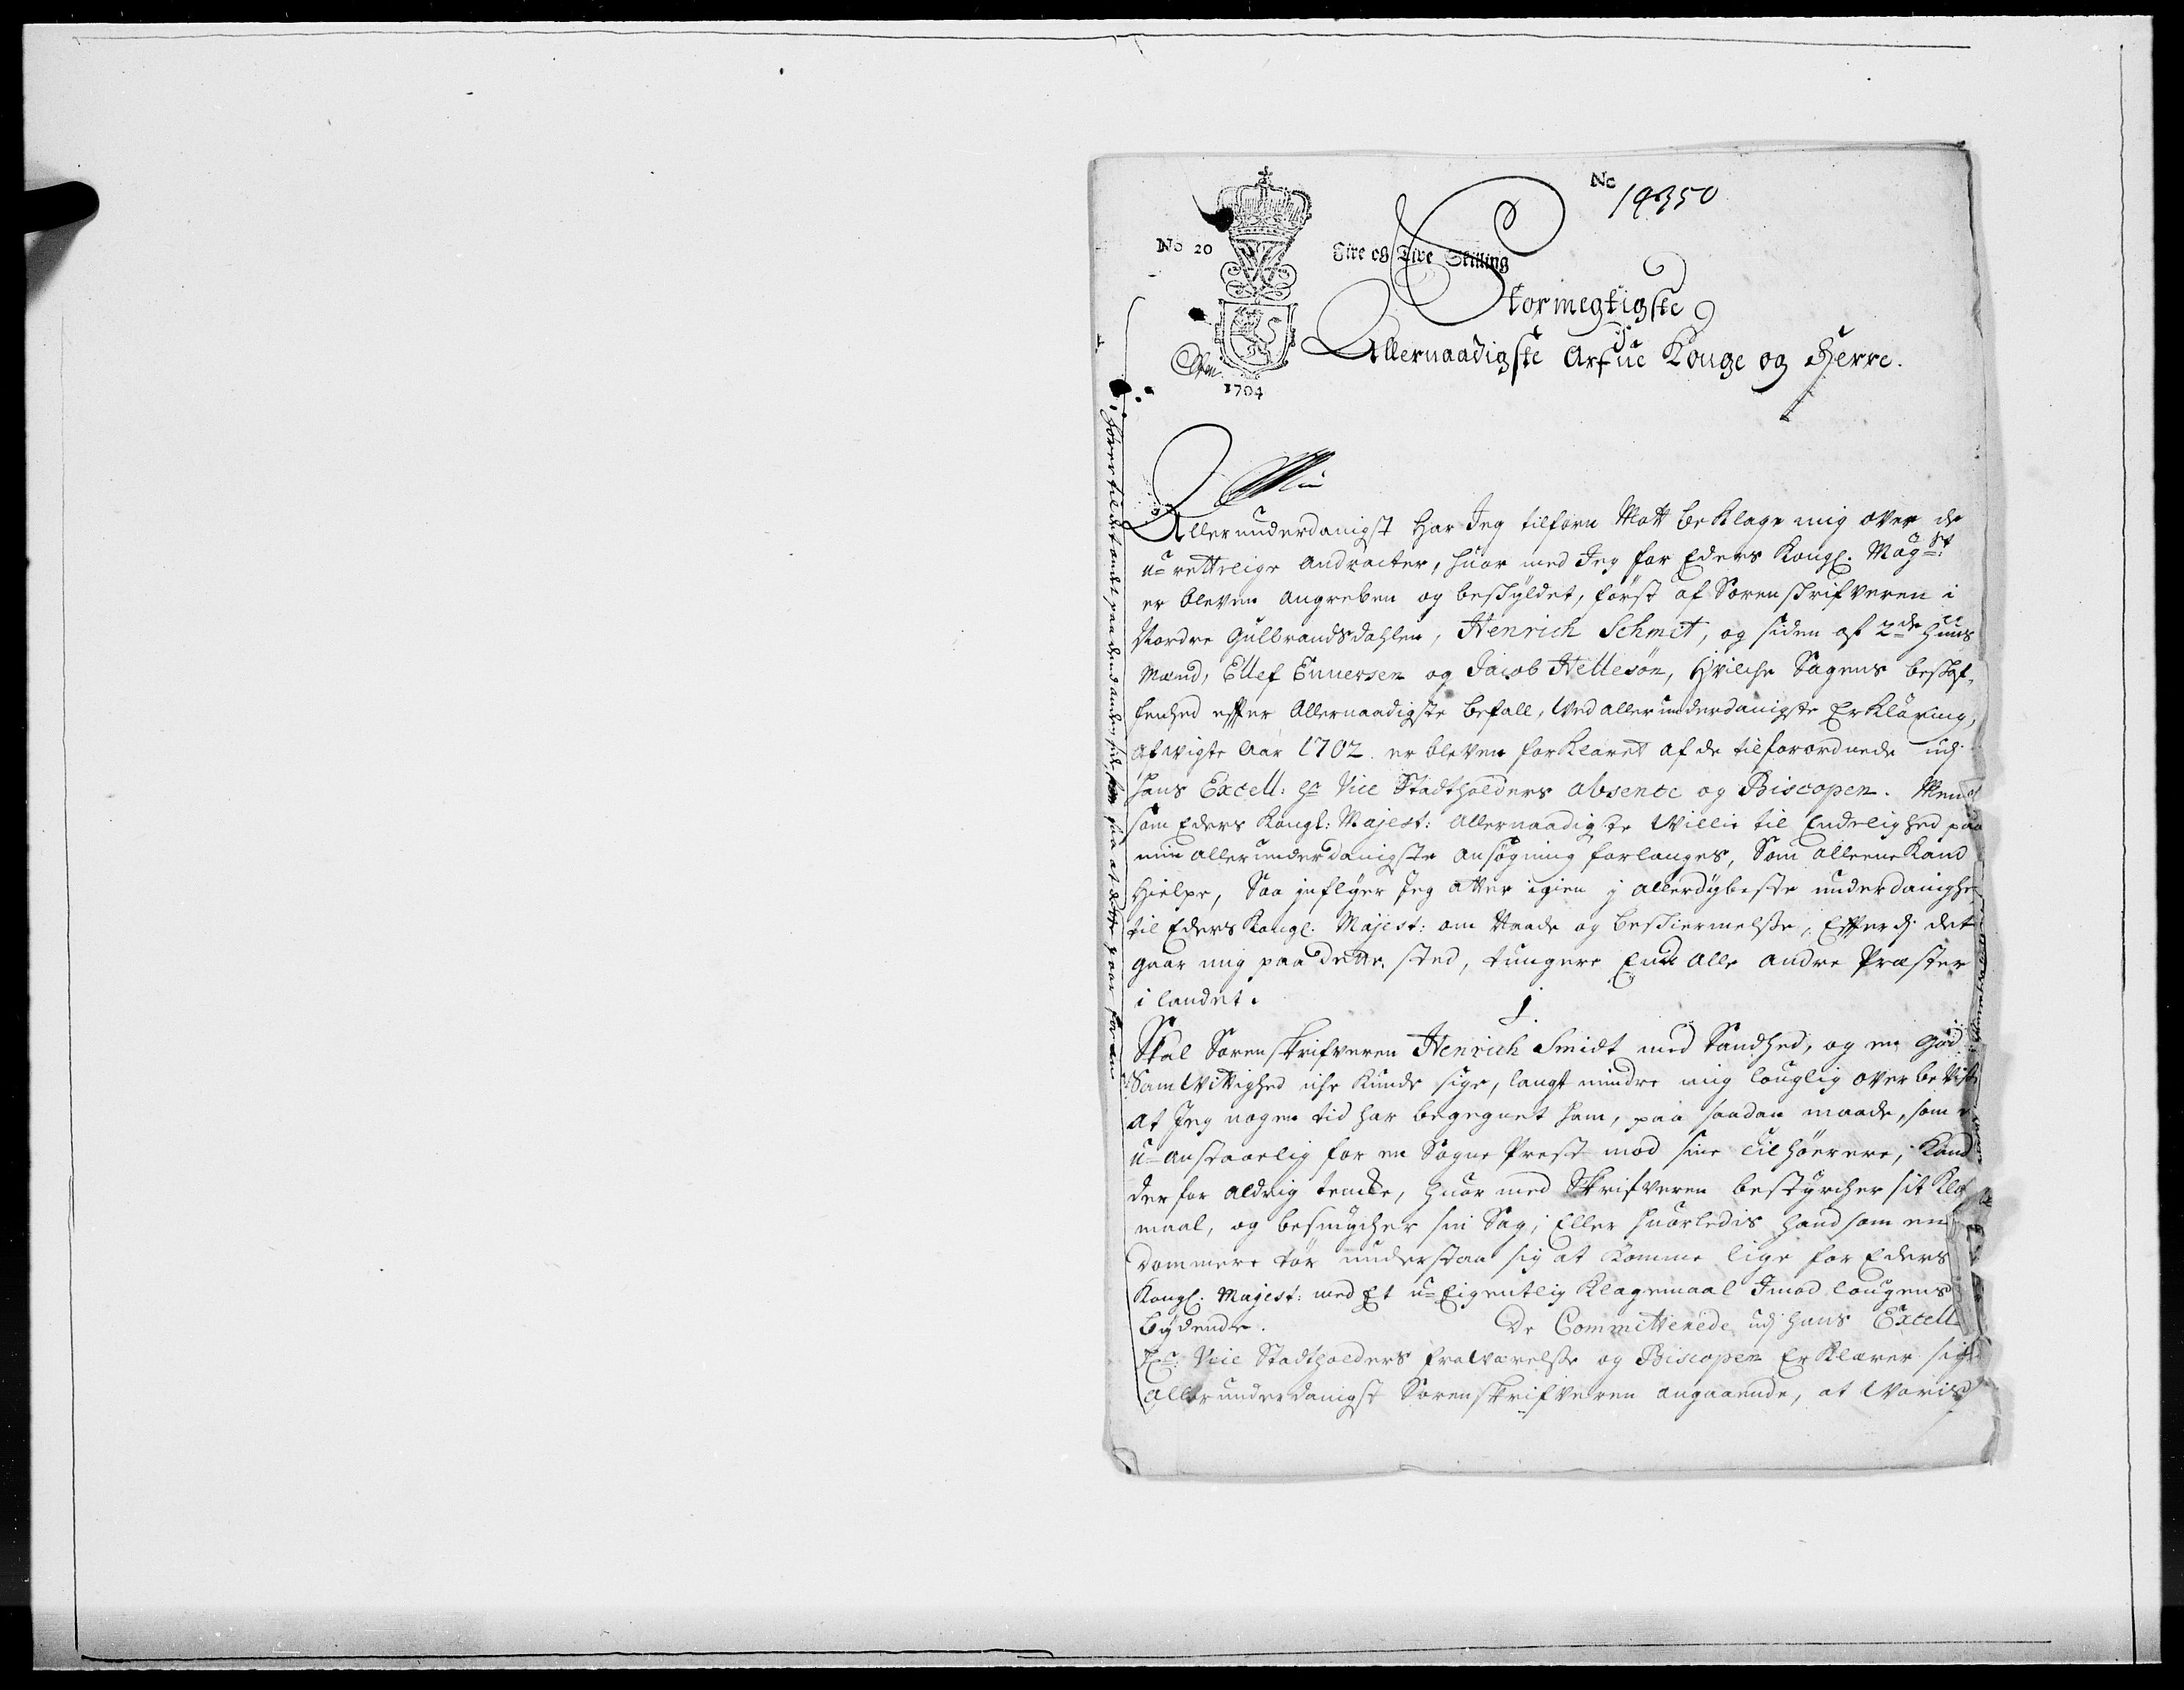 No 19350
No 20
Tire og Tive Skilling
1704
Stormegtigste
Allernaadigste Arfue Konge og Herre.
Allerunderdanigst har Jeg tilforn Mott beklage mig over de
u-rettelige andracter, huor med Jeg for Eders Kongl. Mag:st
er bleven angreben og beskyldet, først af Sorenskrifveren i
Nordre Gulbrandsdahlen, Henrich Schmit, og siden af 2de Huus
Mænd, Ellef Enuersen og Jacob Hellesön, Hvilche Sagens beskaf-
fenhed efter Allernaadigste befall, Ved allerunderdanigste Erklæring,
afvigte Aar 1702. er bleven forklaret af de tilforordnede udj
hans Excell: Hr Vice Stadtholders absence og Biscopen. Men
som Eders Kongl: Majest: allernaadigste Villie til Endelighed paa
min allerunderdanigste ansøgning forlanges, Som alleene Kand
Hielpe, Saa inflyer Jeg atter igien j allerdybeste underdanighe
til Eders Kongl. Majest: om Naade og beskiermelse, Efterdj det
gaar mig paa dette sted, tungere End alle andre Præster
i landet.
1.
Skal Sorenskrifveren Henrich Smidt med Sandhed, og en God
Samvittighed iche kunde sige, langt mindre mig louglig overbevise
at Jeg nogen tid har begegnet ham, paa saadan maade, som
u-anstaaelig for en Sogne Prest mod sine Tilhörere, Kand
derfor aldrig tencke, huor med Skrifveren bestyrcher sit Klag
maal, og besmycher sin Sag; Eller huorledis hand som en
Dommere tör understaa sig at komme lige for Eders
Kongl. Majest: med Et u-Eigentlig Klagemaal Imod lougens
bydende. De Committerede udj hans Excell
Hr: Vice Stadtholders fraværelse og Biscopen Erklærer sig
allerunderdanigst Sorenskrifveren angaaende, at